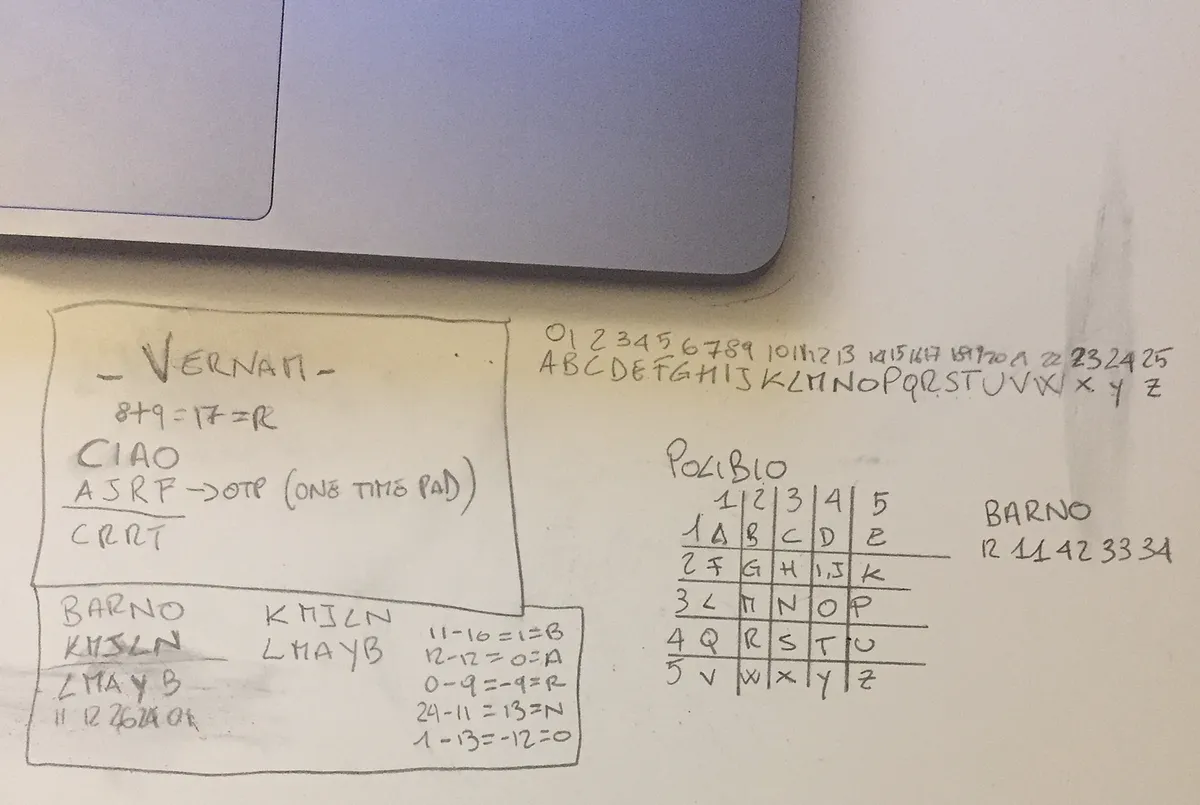 - VERNAM -
8+9=17=R
CIAO
AJRF -> OTP (ONE TIME PAD)
CRRT
BARNO
KMJLN
LMAYB
11 12 26 24 01
KMJLN
LMAYB
11-10=1=B
12-12=0=A
0-9=-9=R
24-11=13=N
1-13=-12=O
0 1 2 3 4 5 6 7 8 9 10 11 12 13 14 15 16 17 18 19 20 21 22 23 24 25
A B C D E F G H I J K L M N O P Q R S T U V W X Y Z
POLIBIO
1 2 3 4 5
1 A B C D E
2 F G H I,J K
3 L M N O P
4 Q R S T U
5 V W X Y Z
BARNO
12 11 42 33 34